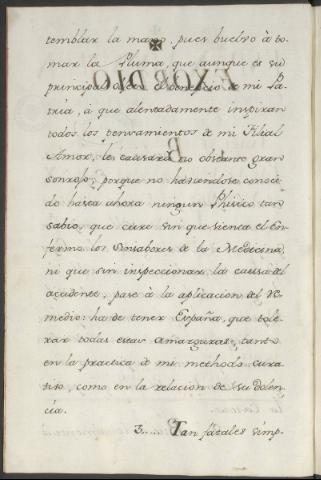 temblar la mano, pues buelvo à to-
mar la Pluma, que aunque es su
principal objeto el beneficio de mi Pa-
tria, à que alentadamente inspiran
todos los pensamientos de mi Filial
Amor, le causarà no obstante gran
sonrojo; porque no haviendose conoci-
do hasta ahora ningun Phisico tan
sabio, que cure sin que sienta el en-
fermo los Sinsabores de la Medicina,
ni que sin inspeccionar la causa del
accidente, pase à la aplicacion del re-
medio: ha de tener España, que tole-
rar todas estas amarguras, tanto
en la practica de mi methodo cura-
tivo, como en la relacion de su dolen-
cia.
3...... Tan fatales simp-